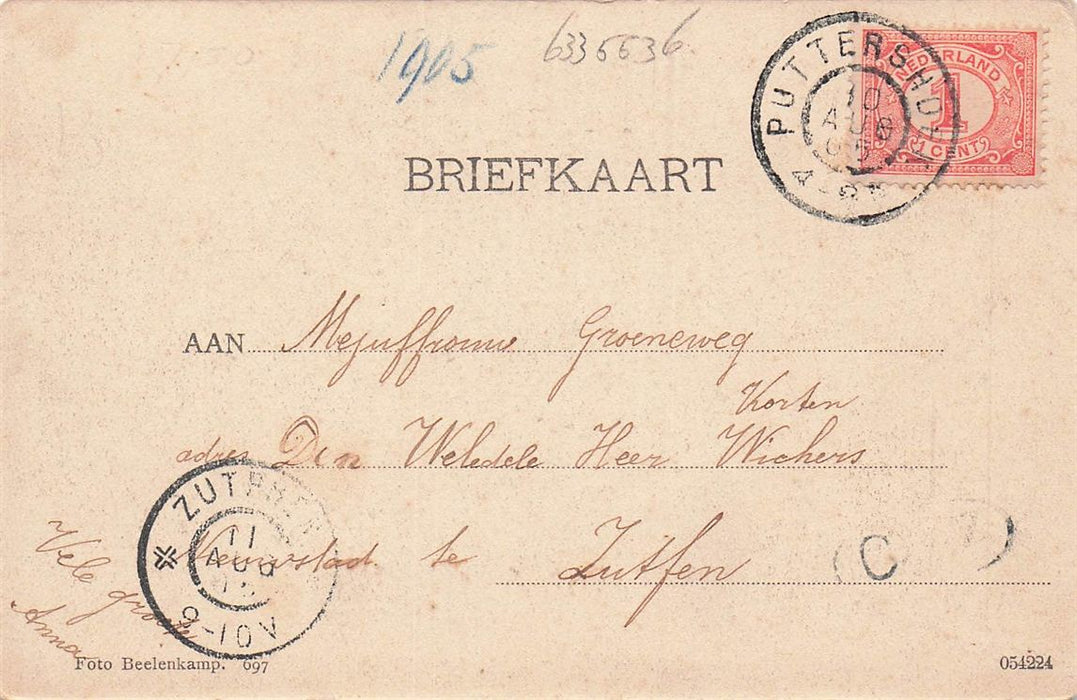 1905 6336636
PUTTERSHOEK
10
AUG
05
4-8N
NEDERLAND
1
1 CENT
BRIEFKAART
AAN Mejuffrouw Groeneweg
Korten
adres Den Weledele Heer Wichers
Nieuwstad te Zutfen
ZUTPHEN
11
AUG
9-10V
C
Vele groete
Anna
Foto Beelenkamp. 697
054224